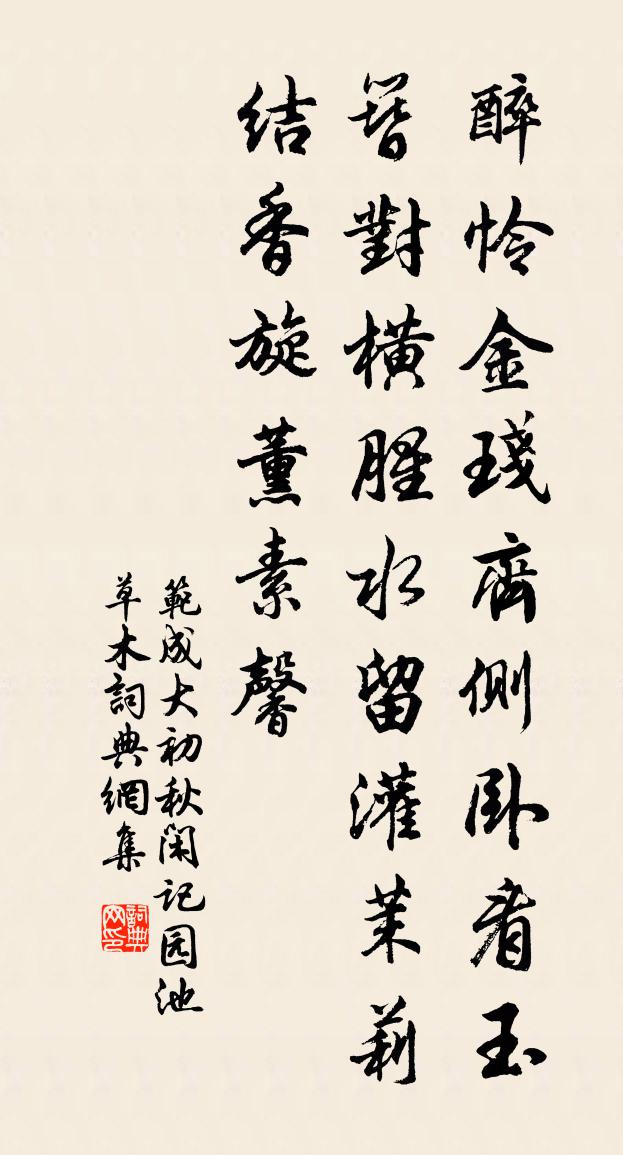 醉怜金琖齊側卧看玉
簪對横腥水留灌茉莉
结香旋薰素馨
範成大初秋閑記园池
草木詞典網集
詞典网印